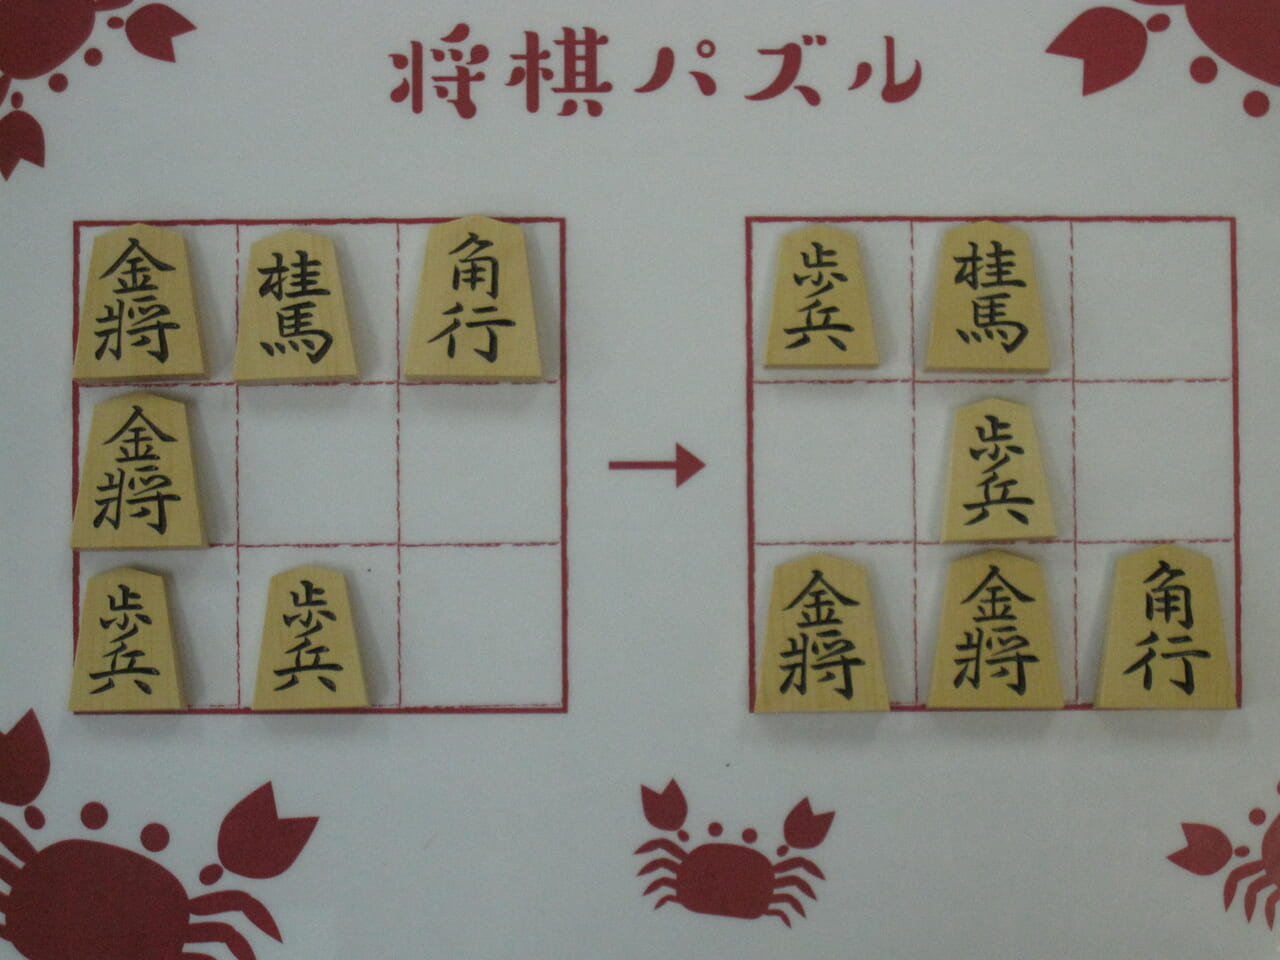 将棋パズル
金将
桂馬
角行
金将
歩兵
歩兵
歩兵
桂馬
歩兵
金将
金将
角行